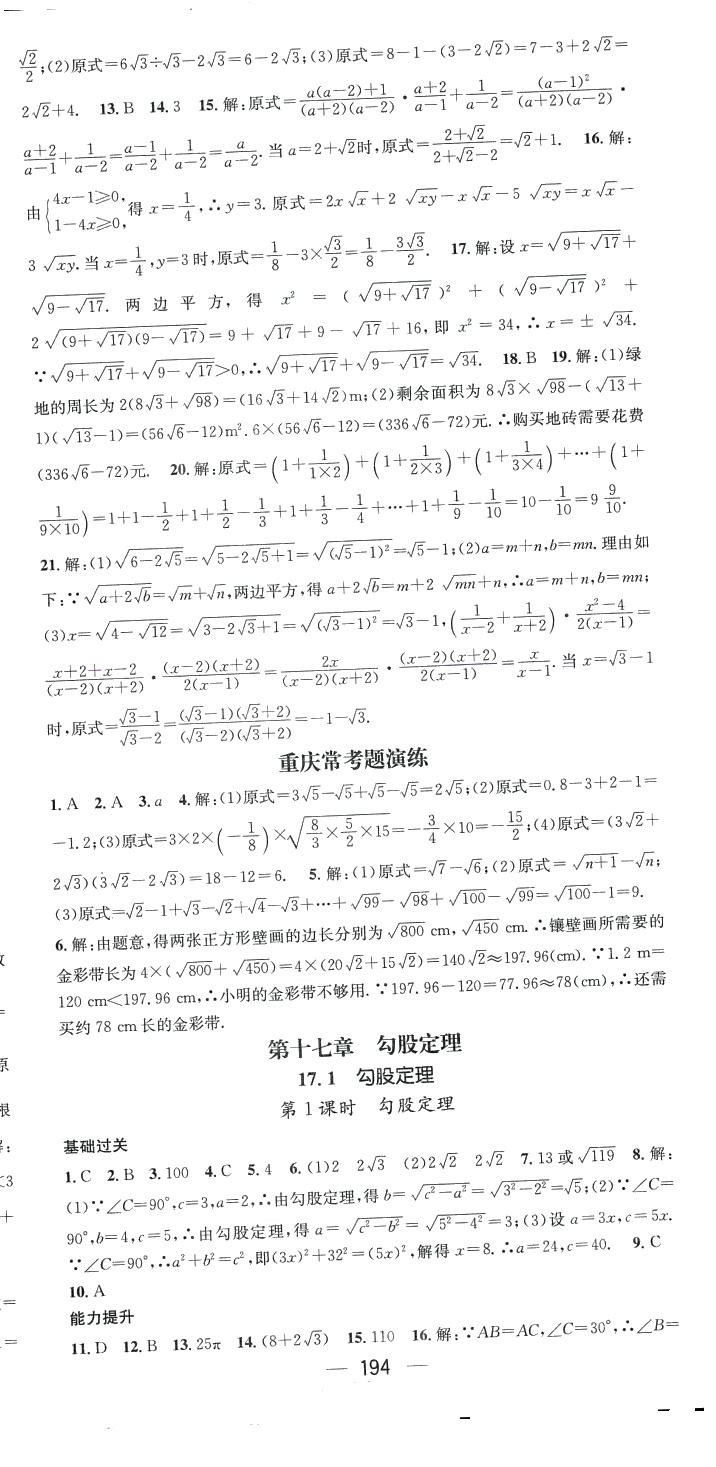 √2/2;(2)原式=6√3÷√3-2√3=6-2√3;(3)原式=8-1-(3-2√2)=7-3+2√2=
2√2+4. 13.B 14.3 15.解:原式=(a(a-2)+1)/((a+2)(a-2))·(a+2)/(a-1)+1/(a-2)=(a-1)²/((a+2)(a-2))·
(a+2)/(a-1)+1/(a-2)=(a-1)/(a-2)+1/(a-2)=a/(a-2).当a=2+√2时,原式=(2+√2)/(2+√2-2)=√2+1. 16.解:
由{4x-1≥0,1-4x≥0,得x=1/4,∴y=3.原式=2x√x+2√(xy)-x√x-5√(xy)=x√x-
3√(xy).当x=1/4,y=3时,原式=1/8-3×√3/2=1/8-3√3/2. 17.解:设x=√(9+√17)+
√(9-√17).两边平方,得x²=(√(9+√17))²+(√(9-√17))²+
2√((9+√17)(9-√17))=9+√17+9-√17+16,即x²=34,∴x=±√34.
∵√(9+√17)+√(9-√17)>0,∴√(9+√17)+√(9-√17)=√34. 18.B 19.解:(1)绿
地的周长为2(8√3+√98)=(16√3+14√2)m;(2)剩余面积为8√3×√98-(√13+
1)(√13-1)=(56√6-12)m².6×(56√6-12)=(336√6-72)元.∴购买地砖需要花费
(336√6-72)元. 20.解:原式=(1+1/(1×2))+(1+1/(2×3))+(1+1/(3×4))+…+(1+
1/(9×10))=1+1-1/2+1+1/2-1/3+1+1/3-1/4+…+1+1/9-1/10=10-1/10=9 9/10.
21.解:(1)√(6-2√5)=√(5-2√5+1)=√((√5-1)²)=√5-1;(2)a=m+n,b=mn.理由如
下:∵√(a+2√b)=√m+√n,两边平方,得a+2√b=m+2√(mn)+n,∴a=m+n,b=mn;
(3)x=√(4-√12)=√(3-2√3+1)=√((√3-1)²)=√3-1,(1/(x-2)+1/(x+2))·(x²-4)/(2(x-1))=
(x+2+x-2)/((x-2)(x+2))·((x-2)(x+2))/(2(x-1))=2x/((x-2)(x+2))·((x-2)(x+2))/(2(x-1))=x/(x-1).当x=√3-1
时,原式=(√3-1)/(√3-2)=((√3-1)(√3+2))/((√3-2)(√3+2))=-1-√3.
重庆常考题演练
1.A 2.A 3.a 4.解:(1)原式=3√5-√5+√5-√5=2√5;(2)原式=0.8-3+2-1=
-1.2;(3)原式=3×2×(-1/8)×√(8/3×5/2×15)=-3/4×10=-15/2;(4)原式=(3√2+
2√3)(3√2-2√3)=18-12=6. 5.解:(1)原式=√7-√6;(2)原式=√(n+1)-√n;
(3)原式=√2-1+√3-√2+√4-√3+…+√99-√98+√100-√99=√100-1=9.
6.解:由题意,得两张正方形壁画的边长分别为√800 cm,√450 cm.∴镶壁画所需要的
金彩带长为4×(√800+√450)=4×(20√2+15√2)=140√2≈197.96(cm).∵1.2 m=
120 cm<197.96 cm,∴小明的金彩带不够用.∵197.96-120=77.96≈78(cm),∴还需
买约78 cm长的金彩带.
第十七章 勾股定理
17.1 勾股定理
第1课时 勾股定理
基础过关
1.C 2.B 3.100 4.C 5.4 6.(1)2 2√3 (2)2√2 2√2 7.13或√119 8.解:
(1)∵∠C=90°,c=3,a=2,∴由勾股定理,得b=√(c²-a²)=√(3²-2²)=√5;(2)∵∠C=
90°,b=4,c=5,∴由勾股定理,得a=√(c²-b²)=√(5²-4²)=3;(3)设a=3x,c=5x.
∵∠C=90°,∴a²+b²=c²,即(3x)²+32²=(5x)²,解得x=8.∴a=24,c=40. 9.C
10.A
能力提升
11.D 12.B 13.25π 14.(8+2√3) 15.110 16.解:∵AB=AC,∠C=30°,∴∠B=
— 194 —